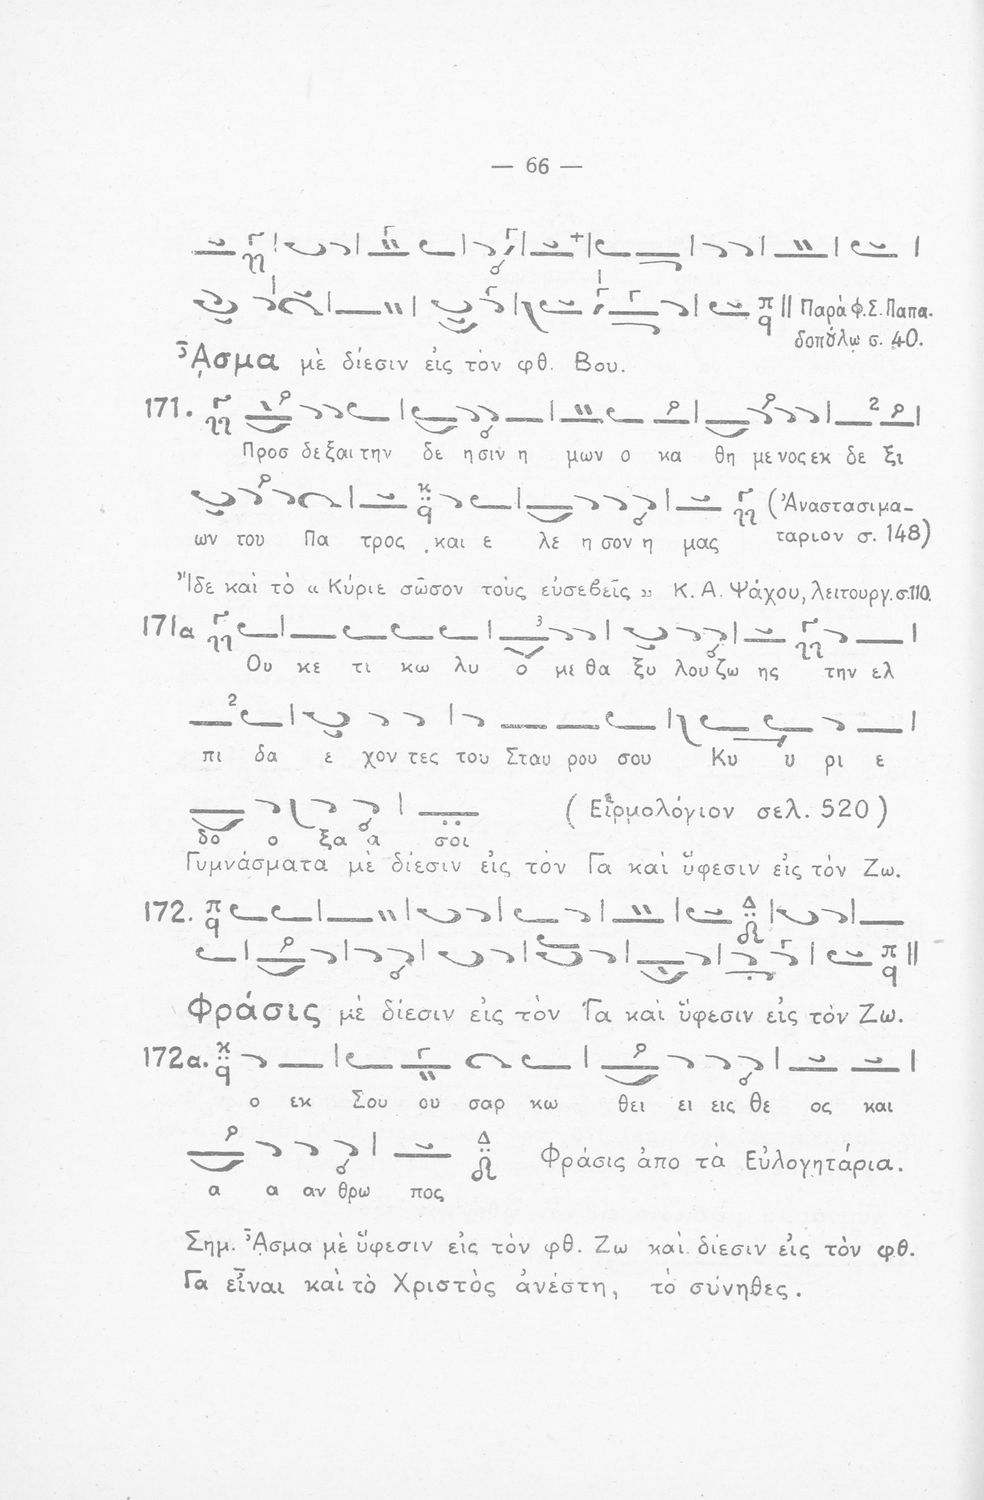 — 66 —
Παρὰ Φ. Σ. Παπα-
δοπούλῳ σ. 40.
ᾎσμα μὲ δίεσιν εἰς τὸν φθ. Βου.
171.
Προσ δε ξαι την δε η σιν η μων ο κα θη με νος εκ δε ξι
(Ἀναστασιμα-
ων του Πα τρος και ε λε η σον η μας ταριον σ. 148)
Ἴδε καὶ τὸ « Κύριε σῶσον τοὺς εὐσεβεῖς » Κ. Α. Ψάχου, λειτουργ. σ. 110.
171α
Ου κε τι κω λυ ο με θα ξυ λου ζω ης την ελ
πι δα ε χον τες του Σταυ ρου σου Κυ υ ρι ε
( Εἱρμολόγιον σελ. 520 )
δο ο ξα α σοι
Γυμνάσματα μὲ δίεσιν εἰς τὸν Γα καὶ ὕφεσιν εἰς τόν Ζω.
172.
Φράσις μὲ δίεσιν εἰς τὸν Γα καὶ ὕφεσιν εἰς τόν Ζω.
172α.
ο εκ Σου ου σαρ κω θει ει εις θε ος και
Φράσις ἀπο τὰ Εὐλογητάρια.
α α αν θρω πος
Σημ. ᾎσμα μὲ ὕφεσιν εἰς τὸν φθ. Ζω καὶ δίεσιν εἰς τὸν φθ.
Γα εἶναι καὶ τὸ Χριστὸς ἀνέστη, τὸ σύνηθες.